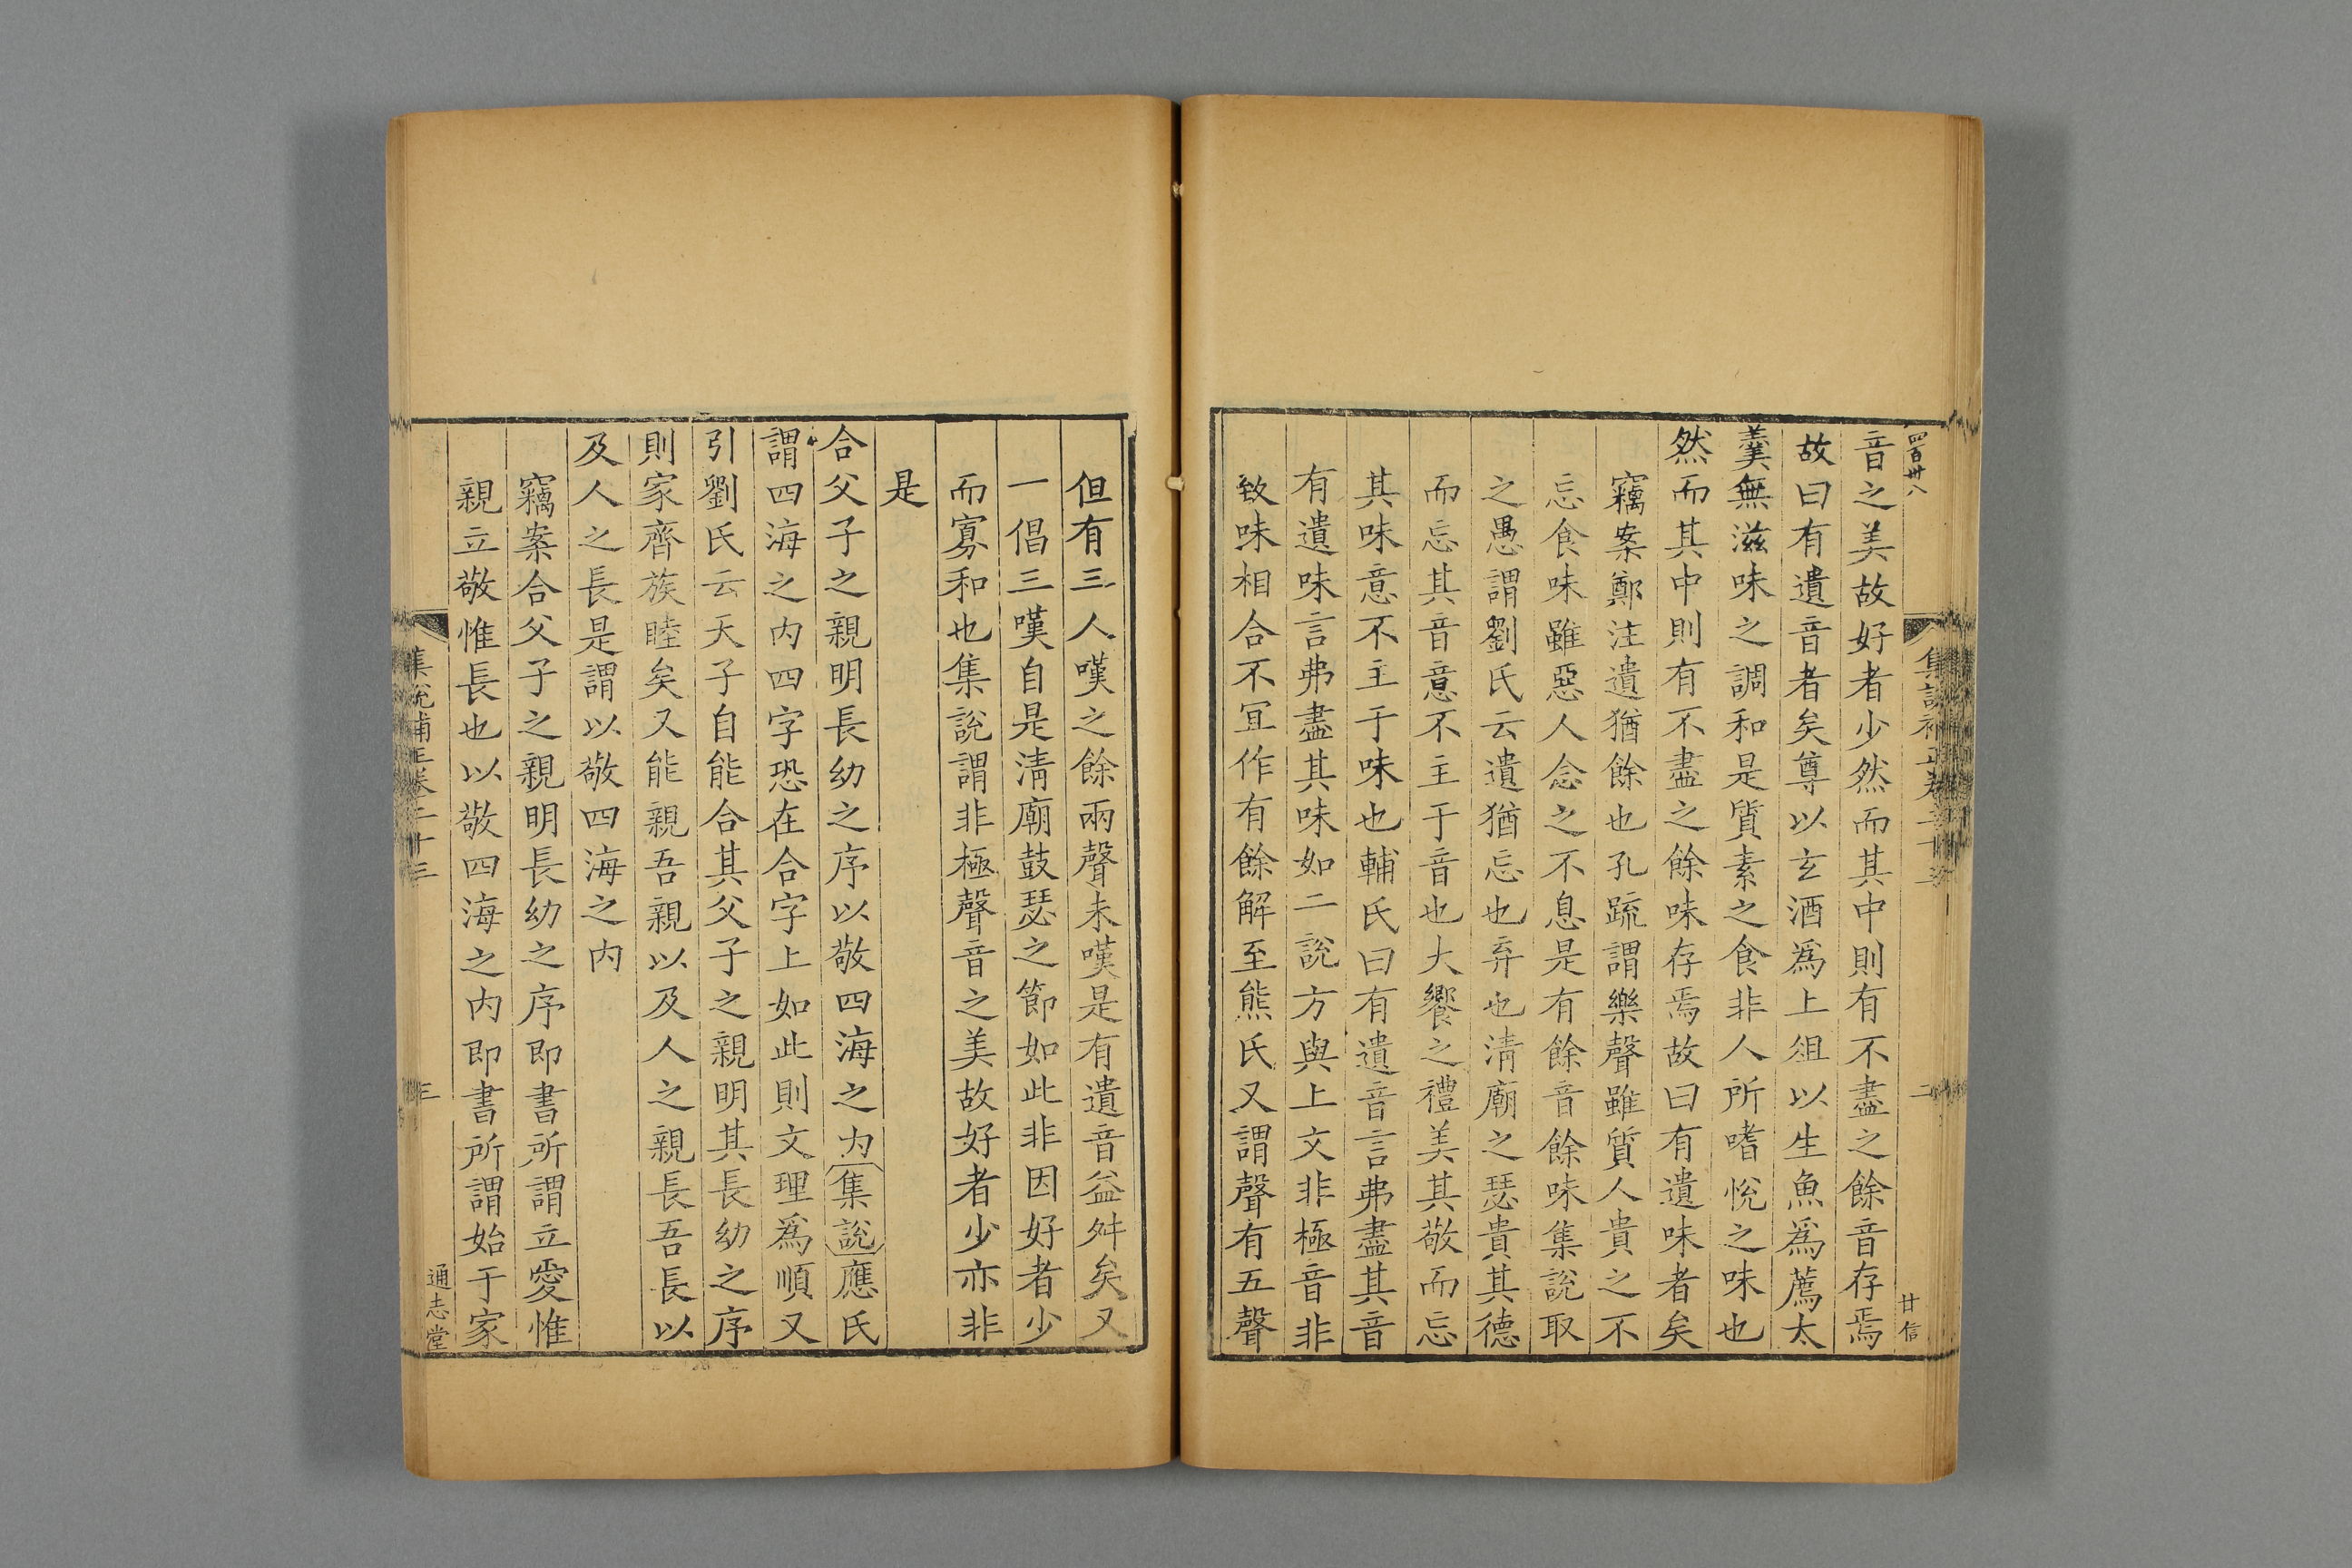 四百卅八
集説補正卷二十三
二
甘信
音之美故好者少然而其中則有不盡之餘音存焉
故曰有遺音者矣尊以玄酒爲上俎以生魚爲薦太
羹無滋味之調和是質素之食非人所嗜悅之味也
然而其中則有不盡之餘味存焉故曰有遺味者矣
竊案鄭注遺猶餘也孔疏謂樂聲雖質人貴之不
忘食味雖惡人念之不息是有餘音餘味集說取
之愚謂劉氏云遺猶忘也弃也清廟之瑟貴其德
而忘其音意不主于音也大饗之禮美其敬而忘
其味意不主于味也輔氏曰有遺音言弗盡其音
有遺味言弗盡其味如二說方與上文非極音非
致味相合不冝作有餘解至熊氏又謂聲有五聲
但有三人嘆之餘兩聲未嘆是有遺音益舛矣又
一倡三嘆自是清廟鼓瑟之節如此非因好者少
而寡和也集說謂非極聲音之美故好者少亦非
是
合父子之親明長幼之序以敬四海之內集說應氏
謂四海之内四字恐在合字上如此則文理爲順又
引劉氏云天子自能合其父子之親明其長幼之序
則家齊族睦矣又能親吾親以及人之親長吾長以
及人之長是謂以敬四海之内
竊案合父子之親明長幼之序即書所謂立愛惟
親立敬惟長也以敬四海之内即書所謂始于家
集說補正卷二十三
三
通志堂